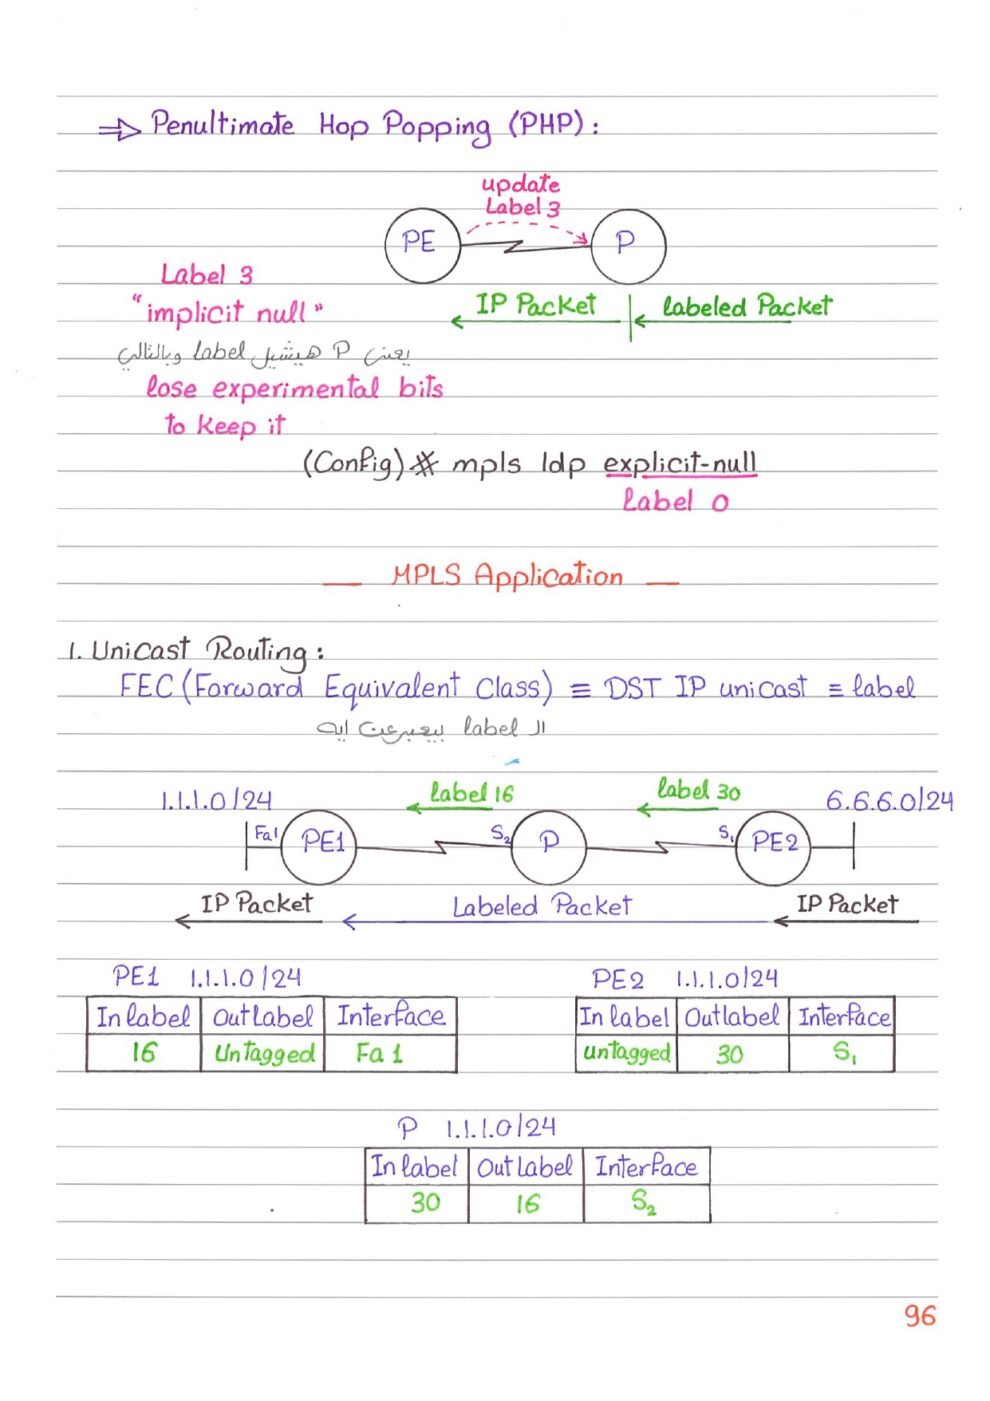 ⇒ Penultimate Hop Popping (PHP) :
update
Label 3
PE
P
IP Packet
labeled Packet
Label 3
"implicit null"
يعني P هيشيل label وبالتالي
lose experimental bits
to keep it
(Config)# mpls ldp explicit-null
label 0
— MPLS Application —
1. Unicast Routing :
FEC (Forward Equivalent Class) ≡ DST IP unicast ≡ label
ال label بيعبر عن ايه
1.1.1.0/24
label 16
label 30
6.6.6.0/24
Fa1
PE1
S2
P
S1
PE2
IP Packet
Labeled Packet
IP Packet
PE1 1.1.1.0/24
In label Out Label Interface
16 Untagged Fa 1
PE2 1.1.1.0/24
In label Out label Interface
untagged 30 S1
P 1.1.1.0/24
In label Out Label Interface
30 16 S2
96